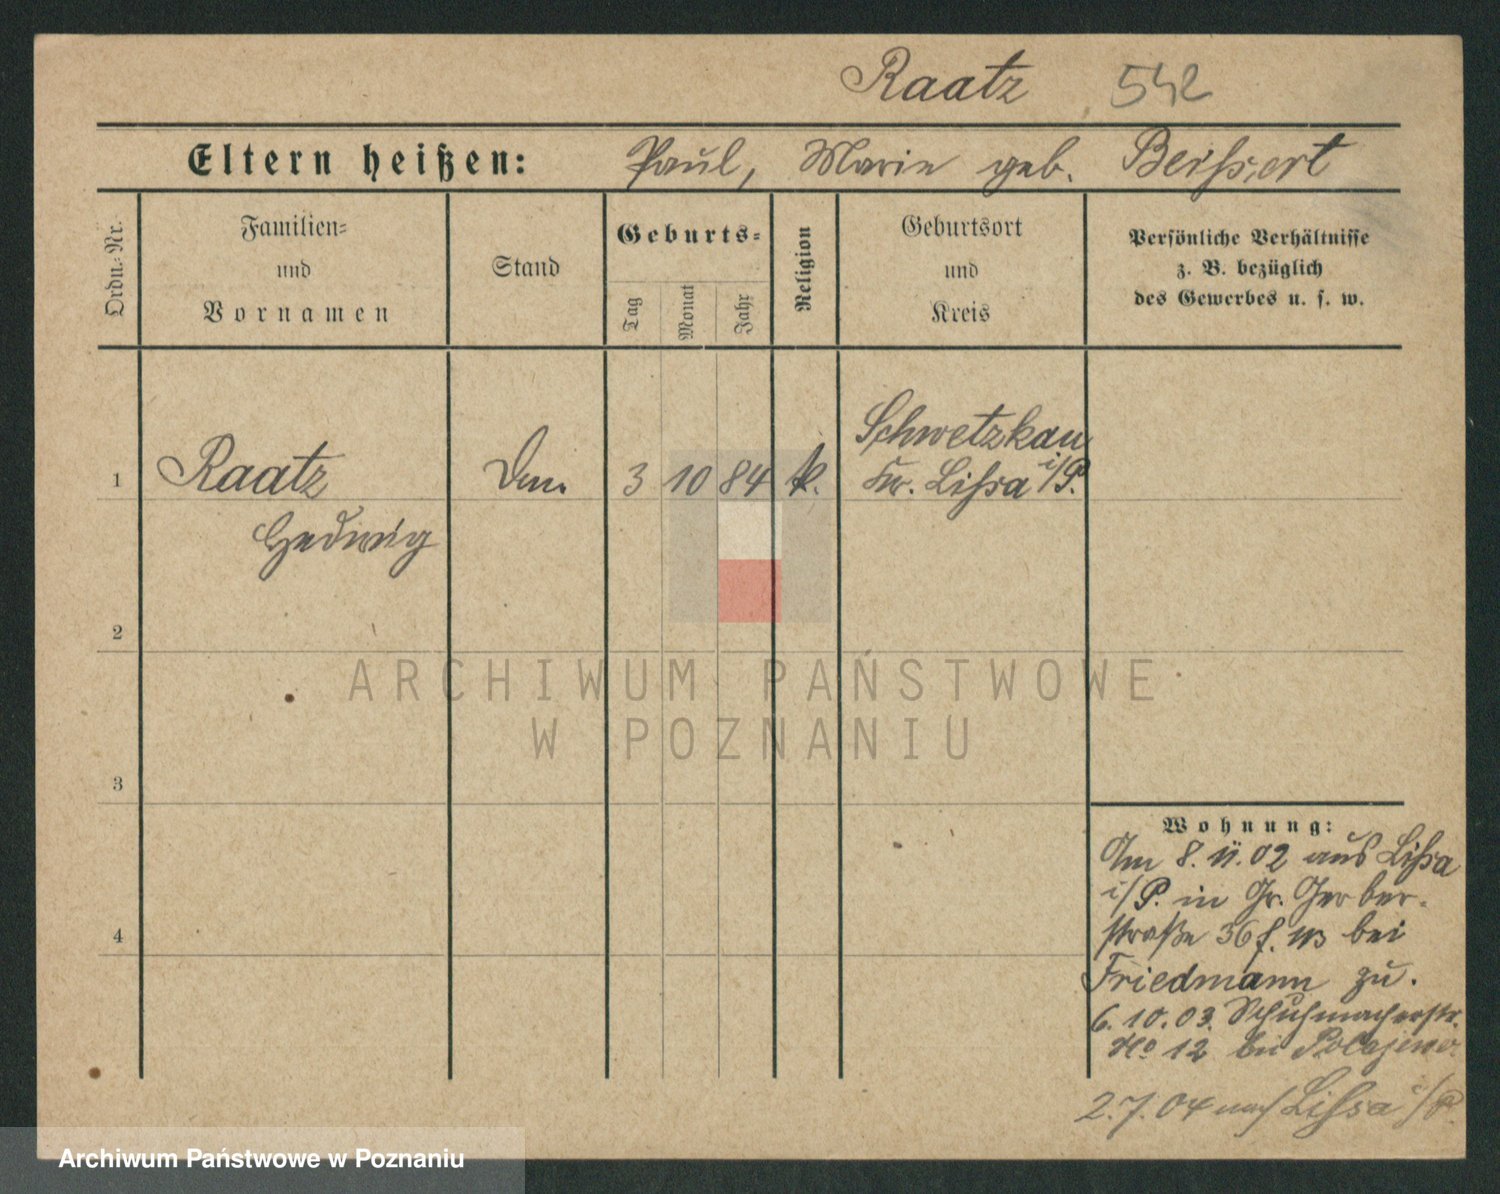 Raatz 542
Eltern heißen: Paul, Marie geb. Beissert
Ordn.-Nr.
Familien-
und
Vornamen
Stand
Geburts-
Tag
Monat
Jahr
Religion
Geburtsort
und
Kreis
Persönliche Verhältnisse
z. B. bezüglich
des Gewerbes u. s. w.
1 Raatz 3 10 84 k. Schwetzkau
Kr. Lissa i/P.
Hedwig
2
3
4
Wohnung:
Am 8. 11. 02 aus Lissa
i/P. in Gr. Gerber-
straße 36 bei
Friedmann zu.
6. 10. 03. Schuhmacherstr.
No 12 bei
2. 7. 04 nach Lissa i/P.
ARCHIWUM PAŃSTWOWE
W POZNANIU
Archiwum Państwowe w Poznaniu